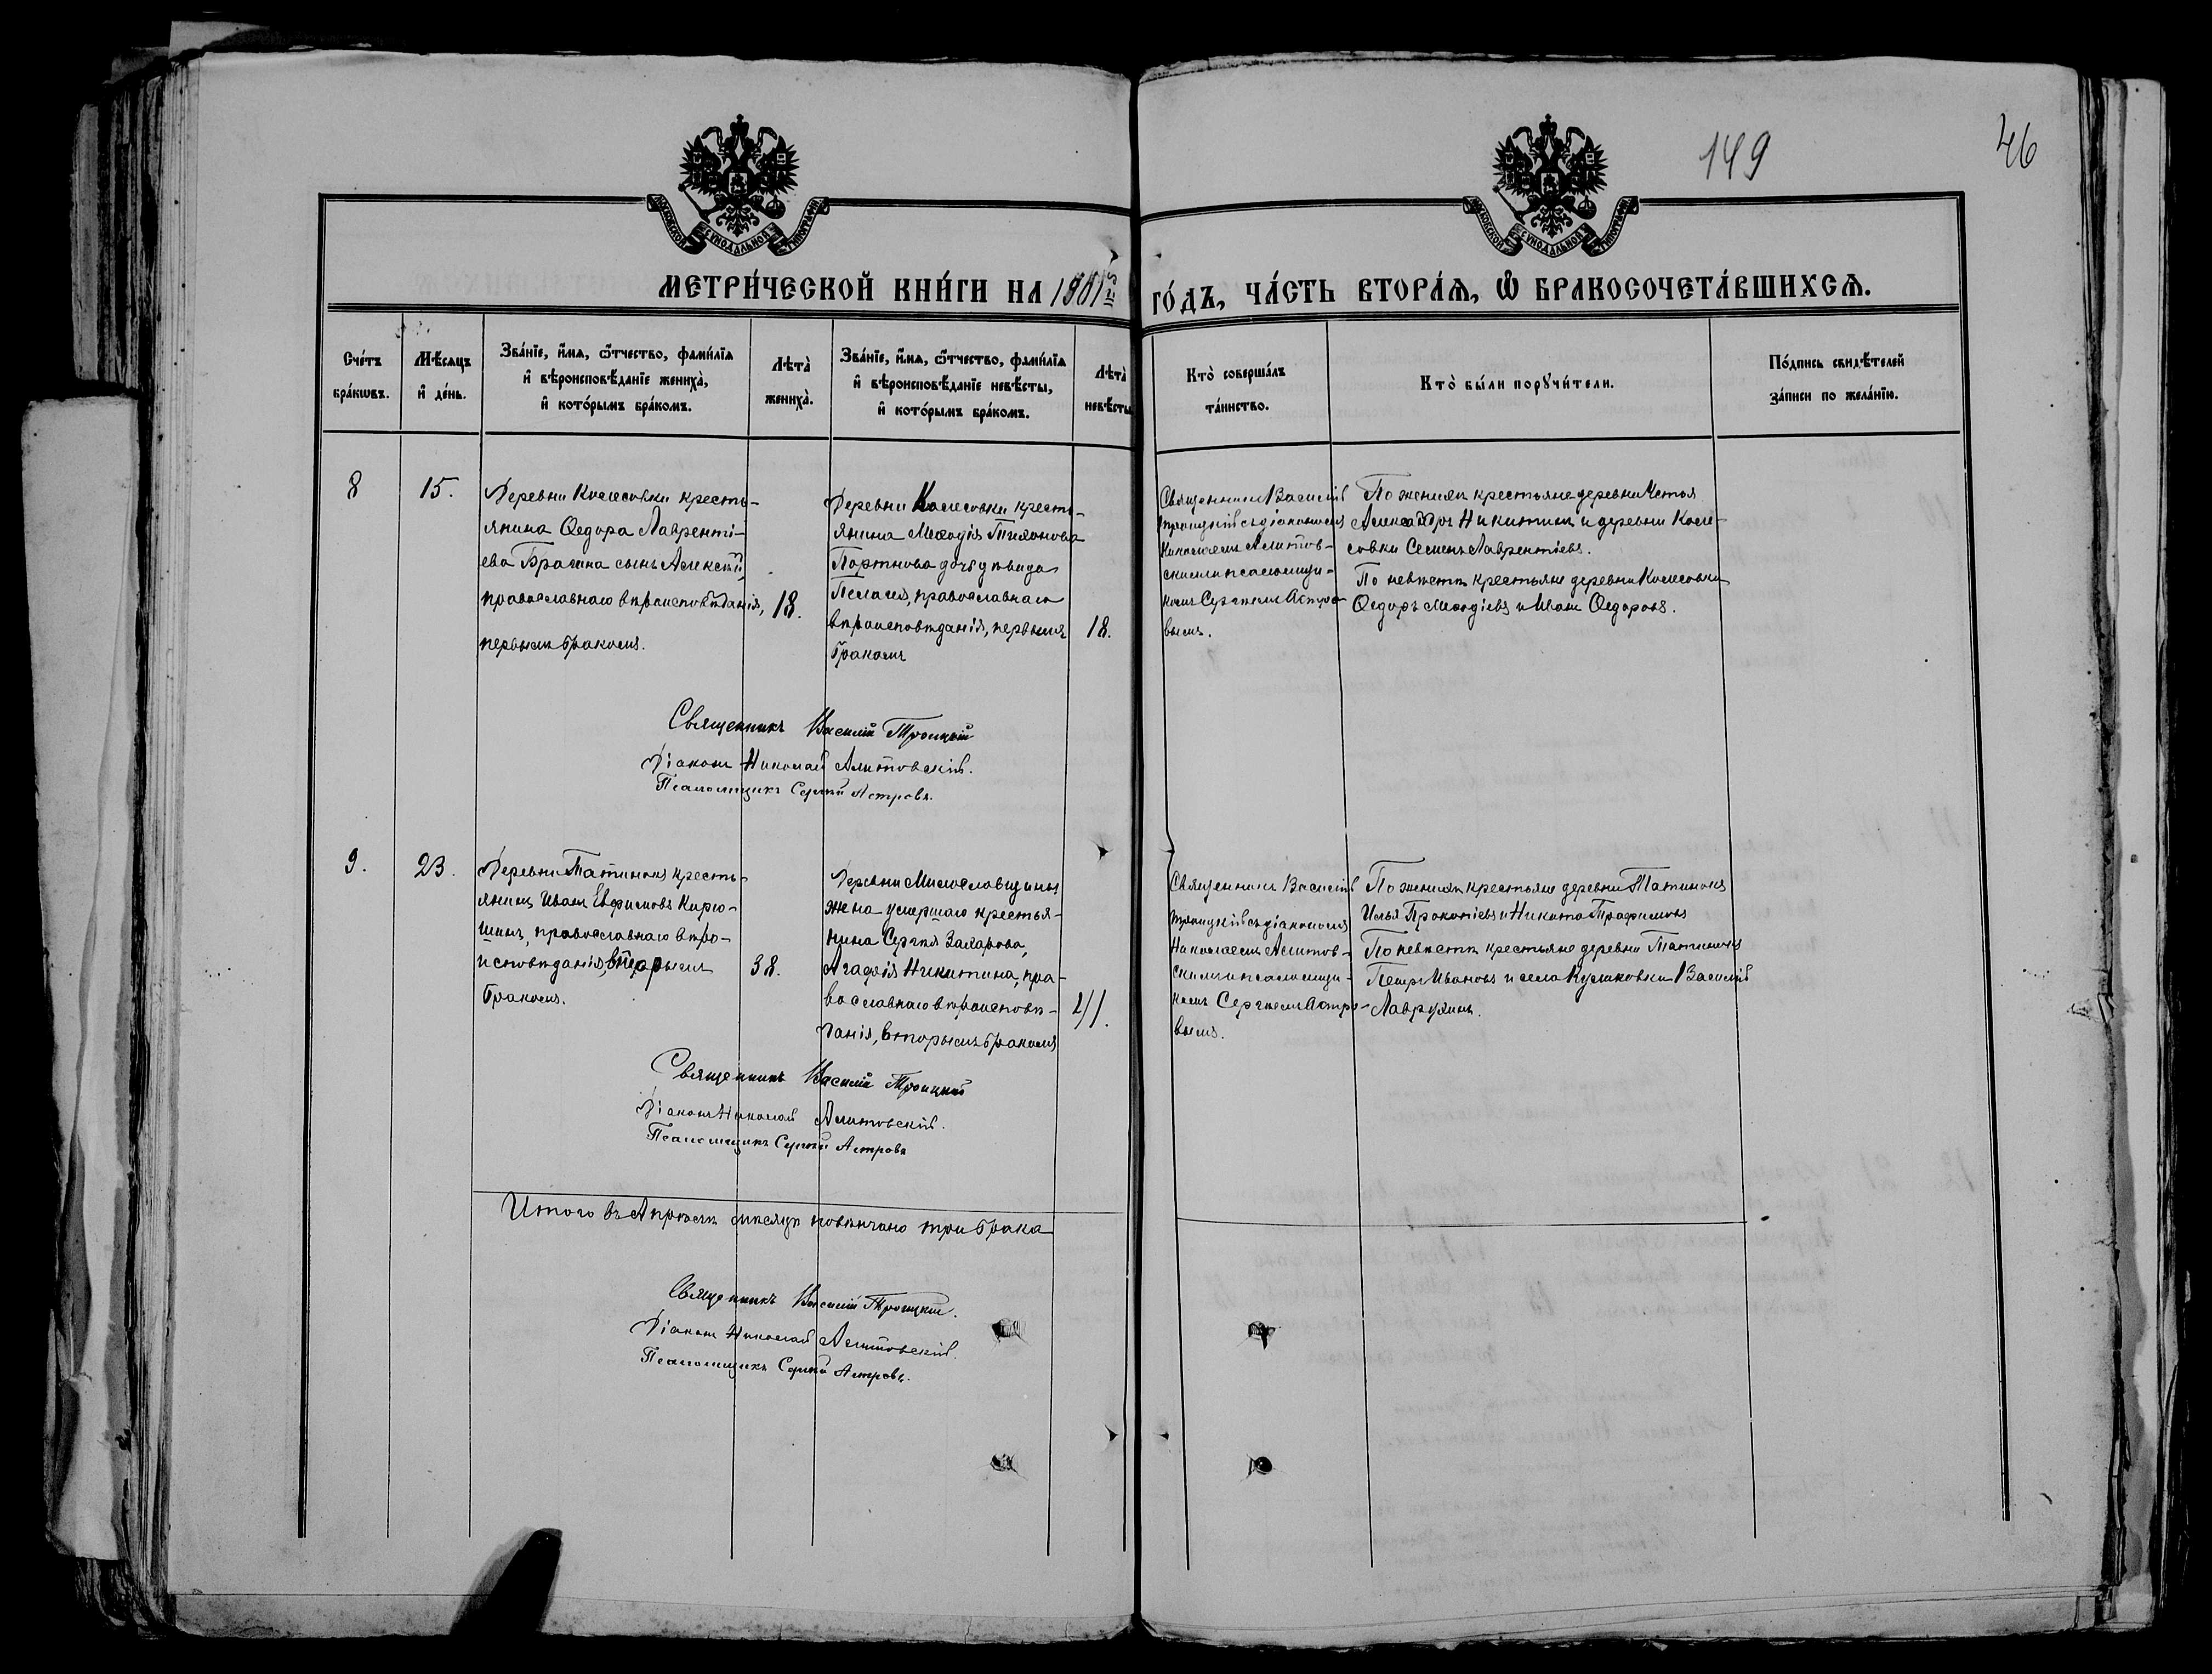 149
46
МОСКОВСКОЙ СѴНОДАЛЬНОЙ ТИПОГРАФІИ
МОСКОВСКОЙ СѴНОДАЛЬНОЙ ТИПОГРАФІИ
МЕТРИ́ЧЕСКОЙ КНИ́ГИ НА 1901й
ГО́ДЪ, ЧА́СТЬ ВТОРА́Ѧ, Ѽ БРАКОСОЧЕТА́ВШИХСѦ.
Сче́тъ бра́кѡвъ.
Мѣ́сяцъ и҆ де́нь.
Зва́нїе, и҆́мя, ѻ҆́тчество, фами́лїя
и҆ вѣроисповѣ́данїе жениха̀,
и҆ кото́рымъ бра́комъ.
Лѣта̀ жениха̀.
Зва́нїе, и҆́мя, ѻ҆́тчество, фами́лїя
и҆ вѣроисповѣ́данїе невѣ́сты,
и҆ кото́рымъ бра́комъ.
Лѣта̀ невѣ́сты
Кто̀ соверша́лъ
та́инство.
Кто̀ бы́ли порꙋчи́тели.
По́дпись свидѣ́телей
за́писи по жела́нїю.
8
15.
Деревни Колесовки кресть-
янина Ѳедора Лавренті-
ева Брагина сынъ Алексѣй,
православнаго вѣроисповѣданія,
первымъ бракомъ.
18.
Деревни Колесовки кресть-
янина Меѳодія Тихонова
Портнова дочь девица
Пелагея, православнаго
вѣроисповѣданія, первымъ
бракомъ
18.
Священникъ Василій
Троицкій съ діакономъ
Николаемъ Алитов-
скимъ и псаломщи-
комъ Сергѣемъ Астро-
вымъ.
По женихѣ крестьяне деревни Устья
Александръ Никитинъ и деревни Коле-
совки Семенъ Лаврентіевъ.
По невѣстѣ крестьяне деревни Колесовки
Ѳедоръ Меѳодіевъ и Иванъ Ѳедоровъ.
Священникъ Василій Троицкій
Діаконъ Николай Алитовскій.
Псаломщикъ Сергѣй Астровъ.
9.
23.
Деревни Татинокъ кресть-
янинъ Иванъ Евфимовъ Кирю-
шинъ, православнаго вѣро-
исповѣданія, вторымъ
бракомъ.
38.
Деревни Милославщины
жена умершаго крестья-
нина Сергѣя Захарова,
Агафія Никитина, пра-
вославнаго вѣроисповѣ-
данія, вторымъ бракомъ
41.
Священникъ Василій
Троицкій съ діакономъ
Николаемъ Алитов-
скимъ и псаломщи-
комъ Сергѣемъ Астро-
вымъ.
По женихѣ крестьяне деревни Татинокъ
Илья Прокопіевъ и Никита Трофимовъ
По невѣстѣ крестьяне деревни Татинокъ
Петръ Ивановъ и села Кулаковки Василій
Лаврухинъ.
Священникъ Василій Троицкій
Діаконъ Николай Алитовскій.
Псаломщикъ Сергѣй Астровъ
Итого въ Апрѣлѣ мѣсяцѣ повѣнчано три брака
Священникъ Василій Троицкій.
Діаконъ Николай Алитовскій.
Псаломщикъ Сергѣй Астровъ.